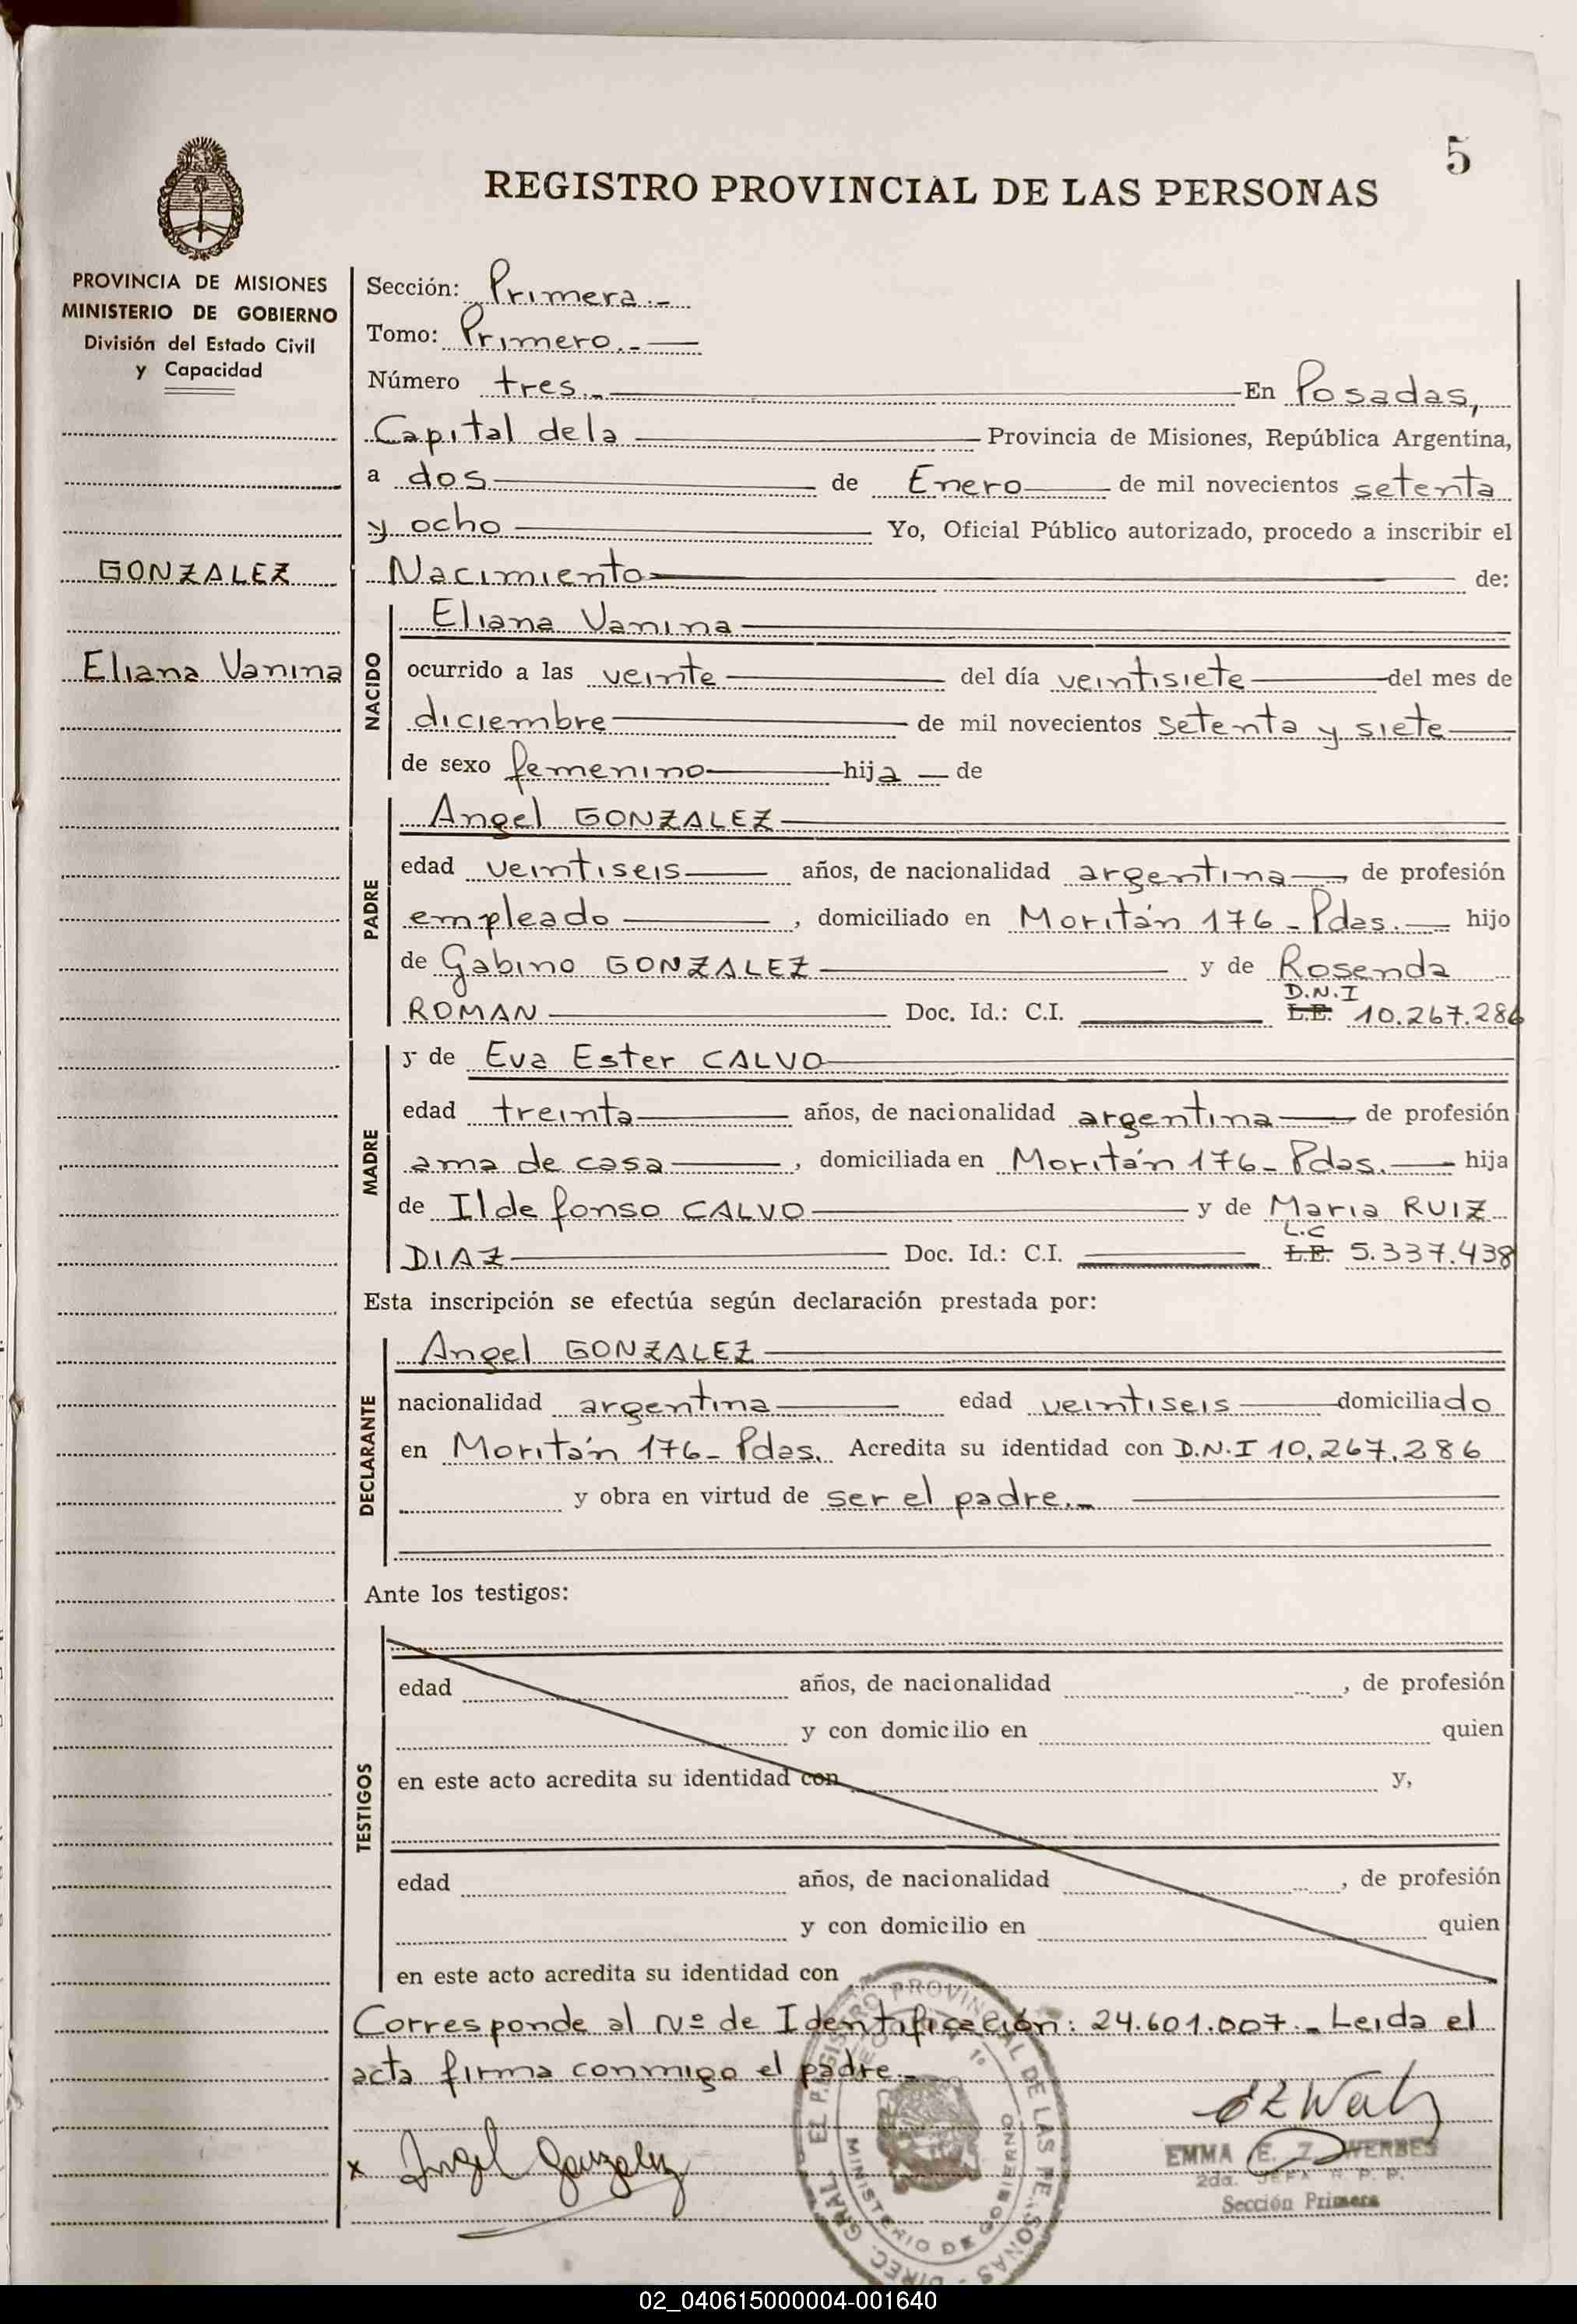 5
REGISTRO PROVINCIAL DE LAS PERSONAS
PROVINCIA DE MISIONES
MINISTERIO DE GOBIERNO
División del Estado Civil
y Capacidad
GONZALEZ
Eliana Vanina
Sección: Primera.-
Tomo: Primero.-
Número tres.- En Posadas,
Capital de la Provincia de Misiones, República Argentina,
a dos de Enero de mil novecientos setenta
y ocho Yo, Oficial Público autorizado, procedo a inscribir el
Nacimiento de:
NACIDO
Eliana Vanina
ocurrido a las veinte del día veintisiete del mes de
diciembre de mil novecientos setenta y siete
de sexo femenino hija de
PADRE
Angel GONZALEZ
edad veintiseis años, de nacionalidad argentina de profesión
empleado, domiciliado en Moritán 176- Pdas. hijo
de Gabino GONZALEZ y de Rosenda
D.N.I
ROMAN Doc. Id.: C.I. L.E. 10.267.286
MADRE
y de Eva Ester CALVO
edad treinta años, de nacionalidad argentina de profesión
ama de casa, domiciliada en Moritán 176- Pdas. hija
de Ildefonso CALVO y de Maria RUIZ
L.C
DIAZ Doc. Id.: C.I. L.E. 5.337.438
Esta inscripción se efectúa según declaración prestada por:
DECLARANTE
Angel GONZALEZ
nacionalidad argentina edad veintiseis domiciliado
en Moritán 176- Pdas. Acredita su identidad con D.N.I 10.267.286
y obra en virtud de ser el padre.-
Ante los testigos:
TESTIGOS
edad años, de nacionalidad , de profesión
y con domicilio en quien
en este acto acredita su identidad con y,
edad años, de nacionalidad , de profesión
y con domicilio en quien
en este acto acredita su identidad con
Corresponde al Nº de Identificación: 24.601.007.- Leida el
acta firma conmigo el padre.-
x Angel Gonzalez
EMMA E. Z. WERBES
2da. JEFA R. P. P.
Sección Primera
DIREC. GRAL. REGISTRO PROVINCIAL DE LAS PERSONAS
MINISTERIO DE GOBIERNO
02_040615000004-001640